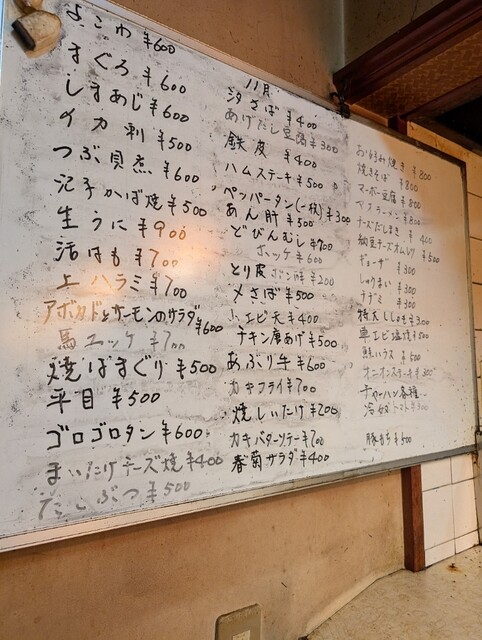 よこわ ¥600
まぐろ ¥600
しまあじ ¥600
イカ刺 ¥500
つぶ貝煮 ¥600
穴子かば焼 ¥500
生うに ¥900
活はも ¥700
上ハラミ ¥700
アボカドとサーモンのサラダ ¥600
馬ユッケ ¥700
焼はまぐり ¥500
平目 ¥500
ゴロゴロタン ¥600
まいたけチーズ焼 ¥400
たこぶつ ¥500
11月
汐さば ¥400
あげだし豆腐 ¥300
鉄皮 ¥400
ハムステーキ ¥500
ペッパータン(一枚) ¥300
あん肝 ¥500
どびんむし ¥700
ホッケ ¥600
とり皮ポン酢 ¥200
〆さば ¥500
エビ天 ¥400
チキン唐あげ ¥500
あぶり牛 ¥600
カキフライ ¥700
焼しいたけ ¥200
カキバターソテー ¥700
春菊サラダ ¥400
お好み焼き ¥800
焼そば ¥800
マーボー豆腐 ¥800
¥800
チーズだしまき ¥400
納豆チーズオムレツ ¥500
ギョーザ ¥300
しゅうまい ¥300
¥300
特大ししゃも ¥300
¥500
¥500
オニオンスライス ¥300
チャーハン各種
冷奴 トマト ¥300
豚 ¥500